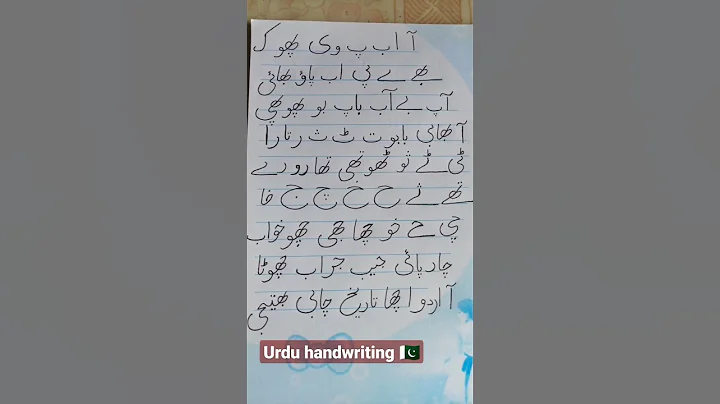 آ ا ب پ وی پھو ک
بھے ے پی اب پاؤ بھائی
آپ بے آب باپ بو پھوپھی
آ بھابی بابو ت ٹ ث ر تارا
ٹی ٹے ثو ٹھو تھی تھا رو رے
تھے ئے ح خ چ ج خا
چی حے خو چھا جھی چھو خواب
چارپائی جیب جراب چھوٹا
آ اردو اچھا تاریخ چابی بھتیجی
Urdu handwriting 🇵🇰